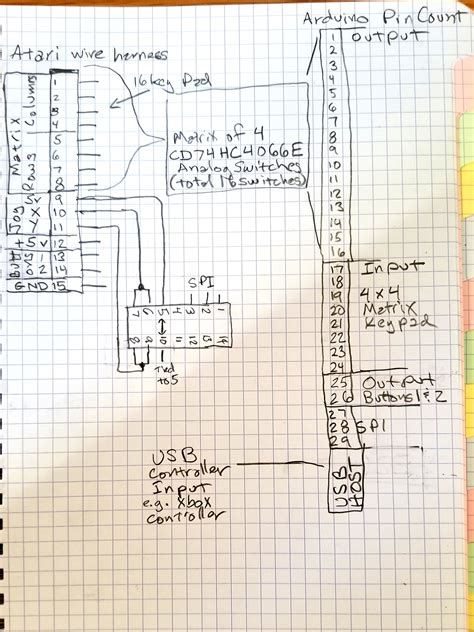 Arduino Pin Count
Output
Atari wire harness
16 key Pad
Matrix
Columns
Rows
1
2
3
4
5
6
7
8
Joy
5v
X
Y
9
10
11
+5v 12
Butt
1 13
2 14
GND 15
Matrix of 4
CD74HC4066E
Analog Switches
(total 16 switches)
SPI
7 6 5 4 3 2 1
8 9 10 11 12 13 14
Tied
to 5
1
2
3
4
5
6
7
8
9
10
11
12
13
14
15
16
17
18
19
20
21
22
23
24
25
26
27
28
29
Input
4x4
Matrix
Keypad
Output
Buttons 1 & 2
SPI
USB
HOST
USB
Controller
Input
e.g. Xbox
Controller